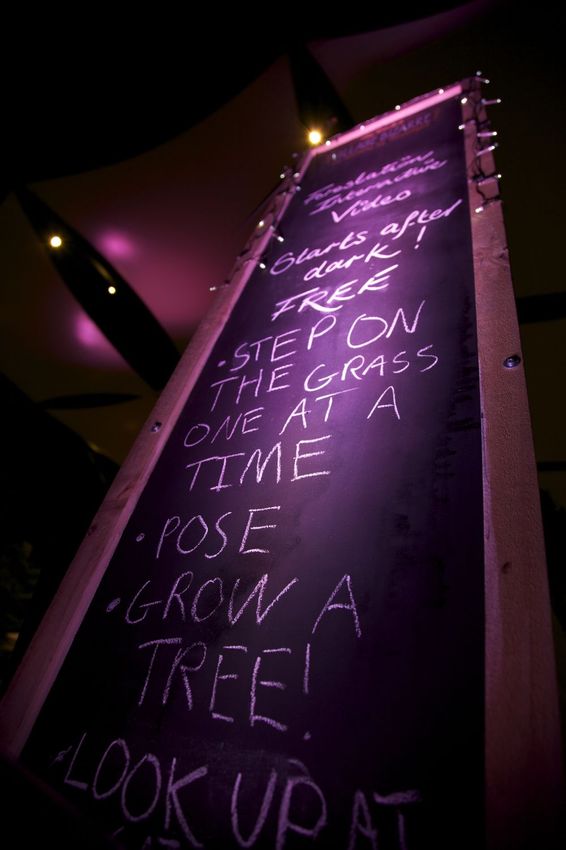 Interactive
Video
Starts after
dark!
FREE
• STEP ON
THE GRASS
ONE AT A
TIME
• POSE
• GROW A
TREE!
• LOOK UP AT